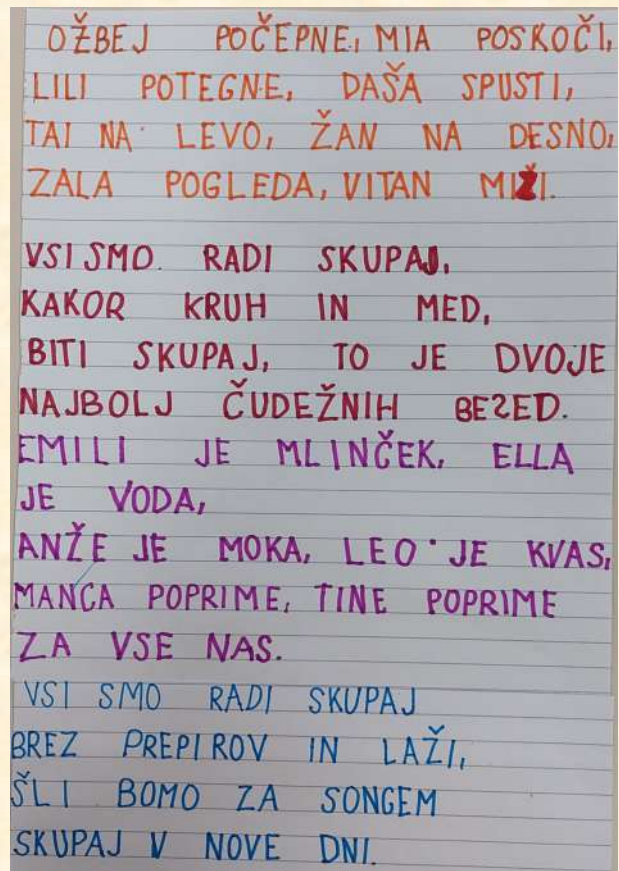 OŽBEJ POČEPNE, MIA POSKOČI,
LILI POTEGNE, DAŠA SPUSTI,
TAI NA LEVO, ŽAN NA DESNO,
ZALA POGLEDA, VITAN MIŽI.
VSI SMO RADI SKUPAJ,
KAKOR KRUH IN MED,
BITI SKUPAJ, TO JE DVOJE
NAJBOLJ ČUDEŽNIH BESED.
EMILI JE MLINČEK, ELLA
JE VODA,
ANŽE JE MOKA, LEO JE KVAS,
MANCA POPRIME, TINE POPRIME
ZA VSE NAS.
VSI SMO RADI SKUPAJ
BREZ PREPIROV IN LAŽI,
ŠLI BOMO ZA SONGEM
SKUPAJ V NOVE DNI.